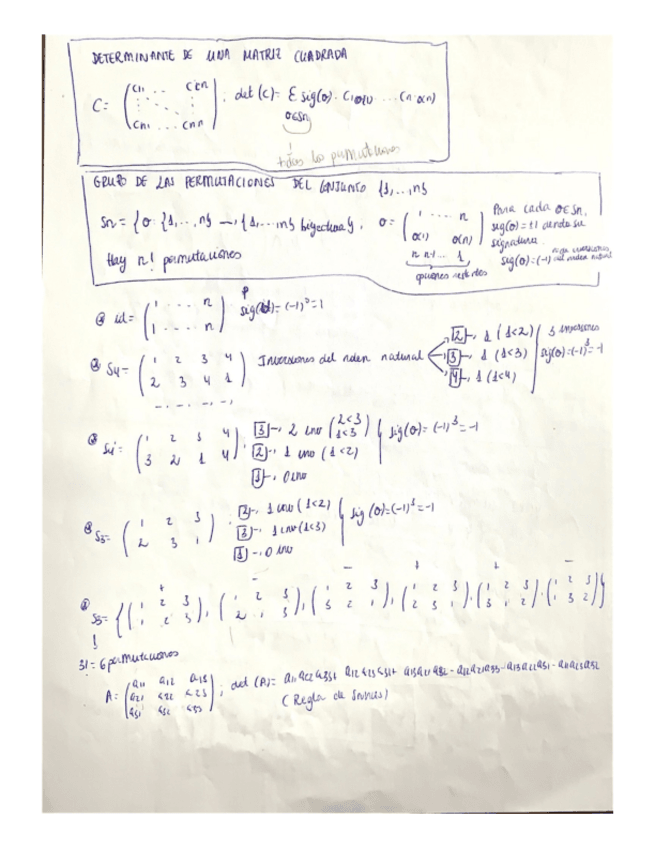 DETERMINANTE DE UNA MATRIZ CUADRADA
C = (c11 ... c1n ; ⋮ ⋱ ⋮ ; cn1 ... cnn) ; det (C) = Σ sig(σ) · c1σ(1) ... cn σ(n)
σ∈Sn
todas las permutaciones
GRUPO DE LAS PERMUTACIONES DEL CONJUNTO {1,...,n}
Sn = {σ: {1,...,n} → {1,...,n} biyectiva}; σ = (1 ... n ; σ(1) σ(n))
Para cada σ∈Sn,
sig(σ) = ±1 denota su
signatura.
sig(σ) = (-1)
del orden natural
n n-1 ... 1
opciones
Hay n! permutaciones
id = (1 ... n ; 1 ... n) sig(id) = (-1)^0 = 1
S4 = (1 2 3 4 ; 2 3 4 1) Inversiones del orden natural
2 → 1 (1<2)
3 → 1 (1<3)
4 → 1 (1<4)
3 inversiones
sig(σ) = (-1)^3 = -1
S4 = (1 2 3 4 ; 3 2 1 4) ·
3 → 2 inv (2<3 ; 1<3)
2 → 1 inv (1<2)
1 → 0 inv
sig(σ) = (-1)^3 = -1
S3 = (1 2 3 ; 2 3 1) ·
2 → 1 inv (1<2)
3 → 1 inv (1<3)
1 → 0 inv
S3 = {(1 2 3 ; 1 2 3), (1 2 3 ; 2 1 3), (1 2 3 ; 3 2 1), (1 2 3 ; 2 3 1), (1 2 3 ; 3 1 2), (1 2 3 ; 1 3 2)}
3! = 6 permutaciones
A = (a11 a12 a13 ; a21 a22 a23 ; a31 a32 a33) ; det (A) = a11 a22 a33 + a12 a23 a31 +
(Regla de Sarrus)